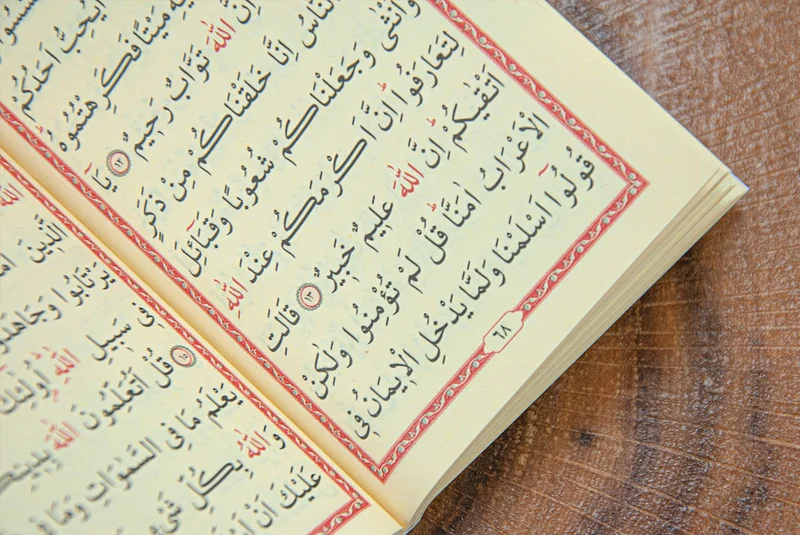 يُحِبُّ اَحَدُكُمْ
مَيْتًا فَكَرِهْتُمُوهُ
اِنَّ اللّٰهَ تَوَّابٌ رَحِيمٌ ١٢ يَٓا
النَّاسُ اِنَّا خَلَقْنَاكُمْ مِنْ ذَكَرٍ
وَاُنْثٰى وَجَعَلْنَاكُمْ شُعُوبًا وَقَبَٓائِلَ
لِتَعَارَفُوا اِنَّ اَكْرَمَكُمْ عِنْدَ اللّٰهِ
اَتْقٰيكُمْ اِنَّ اللّٰهَ عَلِيمٌ خَبِيرٌ ١٣ قَالَتِ
الْاَعْرَابُ اٰمَنَّا قُلْ لَمْ تُؤْمِنُوا وَلٰكِنْ
قُولُٓوا اَسْلَمْنَا وَلَمَّا يَدْخُلِ الْاِيمَانُ فِي
٦٨
اللّٰهَ
الَّذِينَ
يَرْتَابُوا وَجَاهَدُوا
فِي سَبِيلِ اللّٰهِ اُولٰٓئِكَ
١٥ قُلْ اَتُعَلِّمُونَ اللّٰهَ
يَعْلَمُ مَا فِي السَّمٰوَاتِ وَمَا فِي
وَاللّٰهُ بِكُلِّ شَيْءٍ
عَلَيْكَ اَنْ